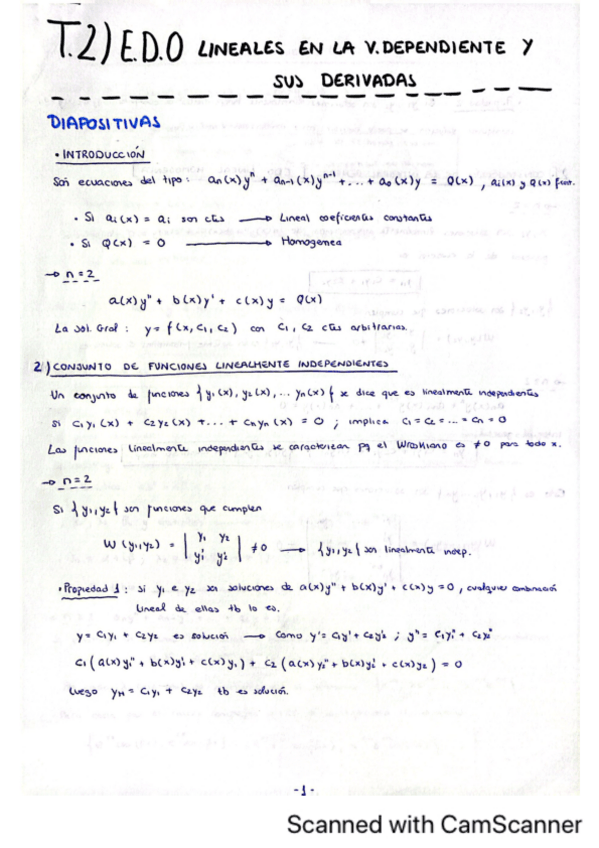 T.2) E.D.O LINEALES EN LA V.DEPENDIENTE Y
SUS DERIVADAS
DIAPOSITIVAS
• INTRODUCCIÓN
Son ecuaciones del tipo: an(x)yⁿ + an-1(x)yⁿ⁻¹ + ... + a0(x)y = Q(x), ai(x) y Q(x) func.
• Si ai(x) = ai son ctes → Lineal coeficientes constantes
• Si Q(x) = 0 → Homogenea
→ n=2
a(x)y" + b(x)y' + c(x)y = Q(x)
La sol. Gral: y = f(x, C1, C2) con C1, C2 ctes arbitrarias.
2) CONJUNTO DE FUNCIONES LINEALMENTE INDEPENDIENTES
Un conjunto de funciones {y1(x), y2(x), ... yn(x)} se dice que es linealmente independientes
si C1y1(x) + C2y2(x) + ... + Cnyn(x) = 0 ; implica C1 = C2 = ... = Cn = 0
Las funciones linealmente independientes se caracterizan pq el Wronkiano es ≠0 para todo x.
→ n=2
Si {y1, y2} son funciones que cumplen
W(y1, y2) = | y1 y2 |
| y1' y2' | ≠ 0 → {y1, y2} son linealmente indep.
• Propiedad 1: si y1 e y2 son soluciones de a(x)y" + b(x)y' + c(x)y = 0, cualquier combinación
lineal de ellas tb lo es.
y = C1y1 + C2y2 es solución → Como y' = C1y1' + C2y2' ; y" = C1y1" + C2y2"
C1(a(x)y1" + b(x)y1' + c(x)y1) + C2(a(x)y2" + b(x)y2' + c(x)y2) = 0
Luego yH = C1y1 + C2y2 tb es solución.
-1-
Scanned with CamScanner